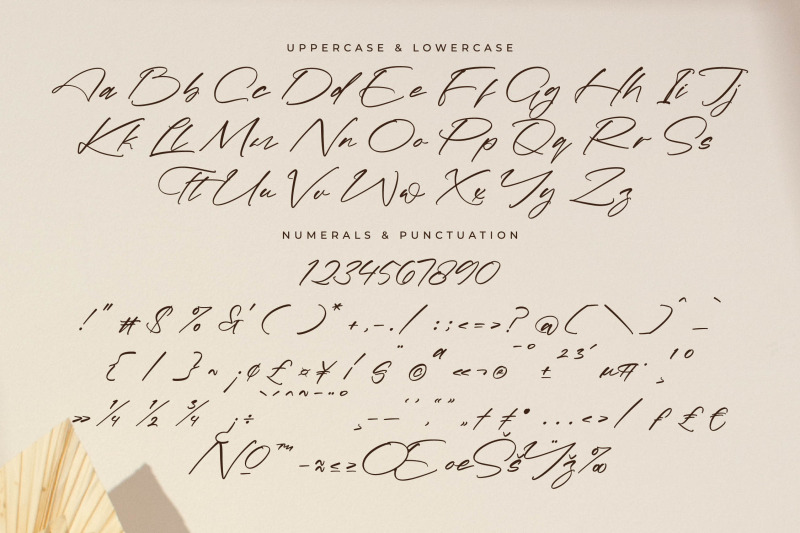 UPPERCASE & LOWERCASE
Aa Bb Cc Dd Ee Ff Gg Hh Ii Jj
Kk Ll Mm Nn Oo Pp Qq Rr Ss
Tt Uu Vv Ww Xx Yy Zz
NUMERALS & PUNCTUATION
1234567890
!"#$%&'()*+,-./:;<=>?@[\]^_`
{|}~¡¢£¤¥¦§¨©ª«¬®¯°±²³´µ¶·¸¹º
»¼½¾¿÷
–—‚“”„†‡•…‹›⁄ƒ₤€
№™−≈≤≥ŒœŠšŸž‰